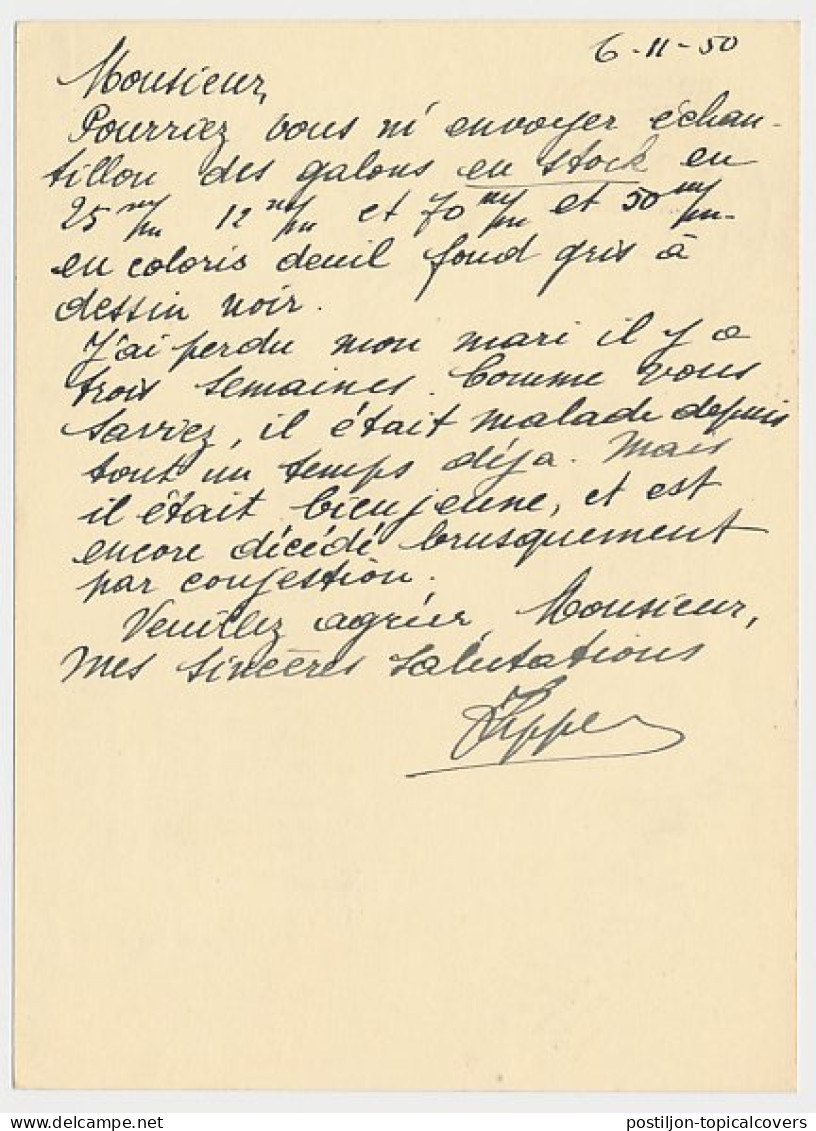 6-11-50
Monsieur,
Pourriez vous m'envoyer échan-
tillon des galons en stock en
25 m/m 12 m/m et 70 m/m et 50 m/m -
en coloris deuil fond gris à
dessin noir.
J'ai perdu mon mari il y a
trois semaines. Comme vous
saviez, il était malade depuis
tout un temps déja. Mais
il était bien jeune, et est
encore décédé brusquement
par congestion.
Veuillez agréer, Monsieur,
mes sincères salutations
postiljon-topicalcovers